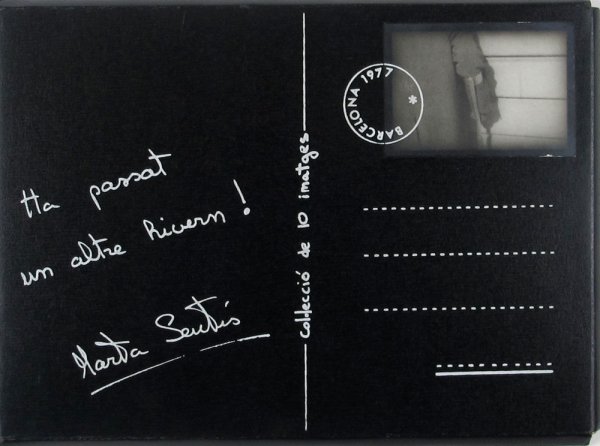 Ha passat
un altre hivern!
Marta Sentís
Col·lecció de 10 imatges
BARCELONA 1977 *